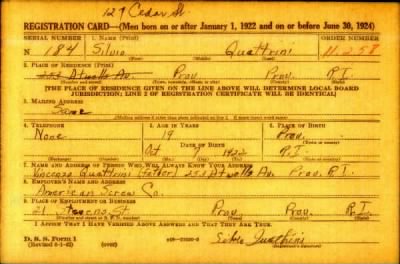 129 Cedar St.
REGISTRATION CARD—(Men born on or after January 1, 1922 and on or before June 30, 1924)
SERIAL NUMBER 1. NAME (Print) ORDER NUMBER
N 184 Silvio Quattrini 11,258
(First) (Middle) (Last)
2. PLACE OF RESIDENCE (Print)
253 Atwells Av. Prov. R.I.
(Number and street) (Town, township, village, or city) (County) (State)
[THE PLACE OF RESIDENCE GIVEN ON THE LINE ABOVE WILL DETERMINE LOCAL BOARD
JURISDICTION; LINE 2 OF REGISTRATION CERTIFICATE WILL BE IDENTICAL]
3. MAILING ADDRESS
Same
4. TELEPHONE 5. AGE IN YEARS 6. PLACE OF BIRTH
None 19 Prov.
DATE OF BIRTH
Oct 1922 R.I.
(Exchange) (Number) (Mo.) (Day) (Yr.) (State or country)
7. NAME AND ADDRESS OF PERSON WHO WILL ALWAYS KNOW YOUR ADDRESS
Vincenzo Quattrini (father) 253 Atwells Av. Prov. R.I.
8. EMPLOYER'S NAME AND ADDRESS
American Screw Co.
9. PLACE OF EMPLOYMENT OR BUSINESS
21 Stevens St. Prov. Prov. R.I.
(Number and street or R. F. D. number) (Town) (County) (State)
I AFFIRM THAT I HAVE VERIFIED ABOVE ANSWERS AND THAT THEY ARE TRUE.
D. S. S. FORM 1 (over) Silvio Quattrini